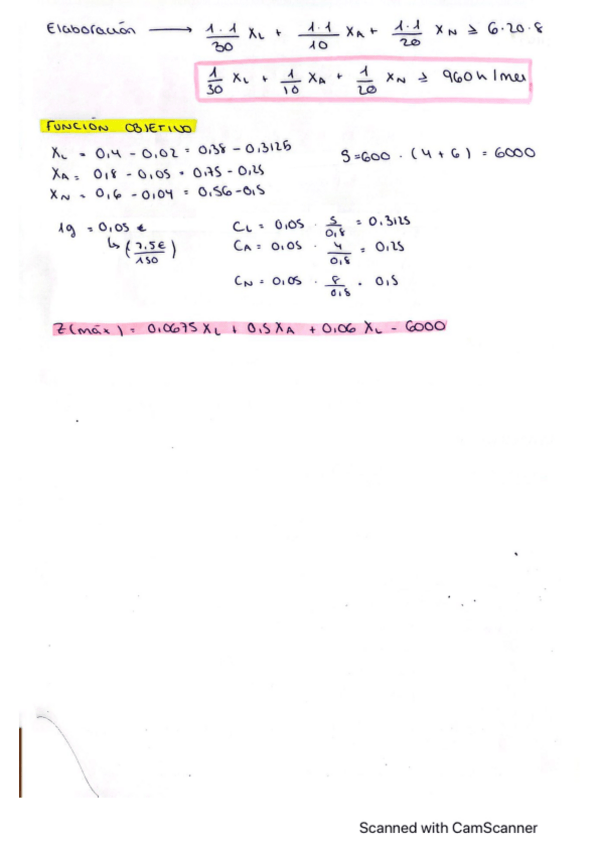 Elaboración → 1·1/30 XL + 1·1/10 XA + 1·1/20 XN ≥ 6·20·8
1/30 XL + 1/10 XA + 1/20 XN ≥ 960 h/mes
FUNCIÓN OBJETIVO
XL = 0,4 - 0,02 = 0,38 - 0,3125
XA = 0,8 - 0,05 = 0,75 - 0,25
XN = 0,6 - 0,04 = 0,56 - 0,5
S=600 · (4+6) = 6000
1g = 0,05 €
↳ (7.5€/150)
CL = 0,05 · 5/0,8 = 0,3125
CA = 0,05 · 4/0,8 = 0,25
CN = 0,05 · 8/0,8 = 0,5
Z(máx) = 0,0675 XL + 0,5 XA + 0,06 XL - 6000
Scanned with CamScanner